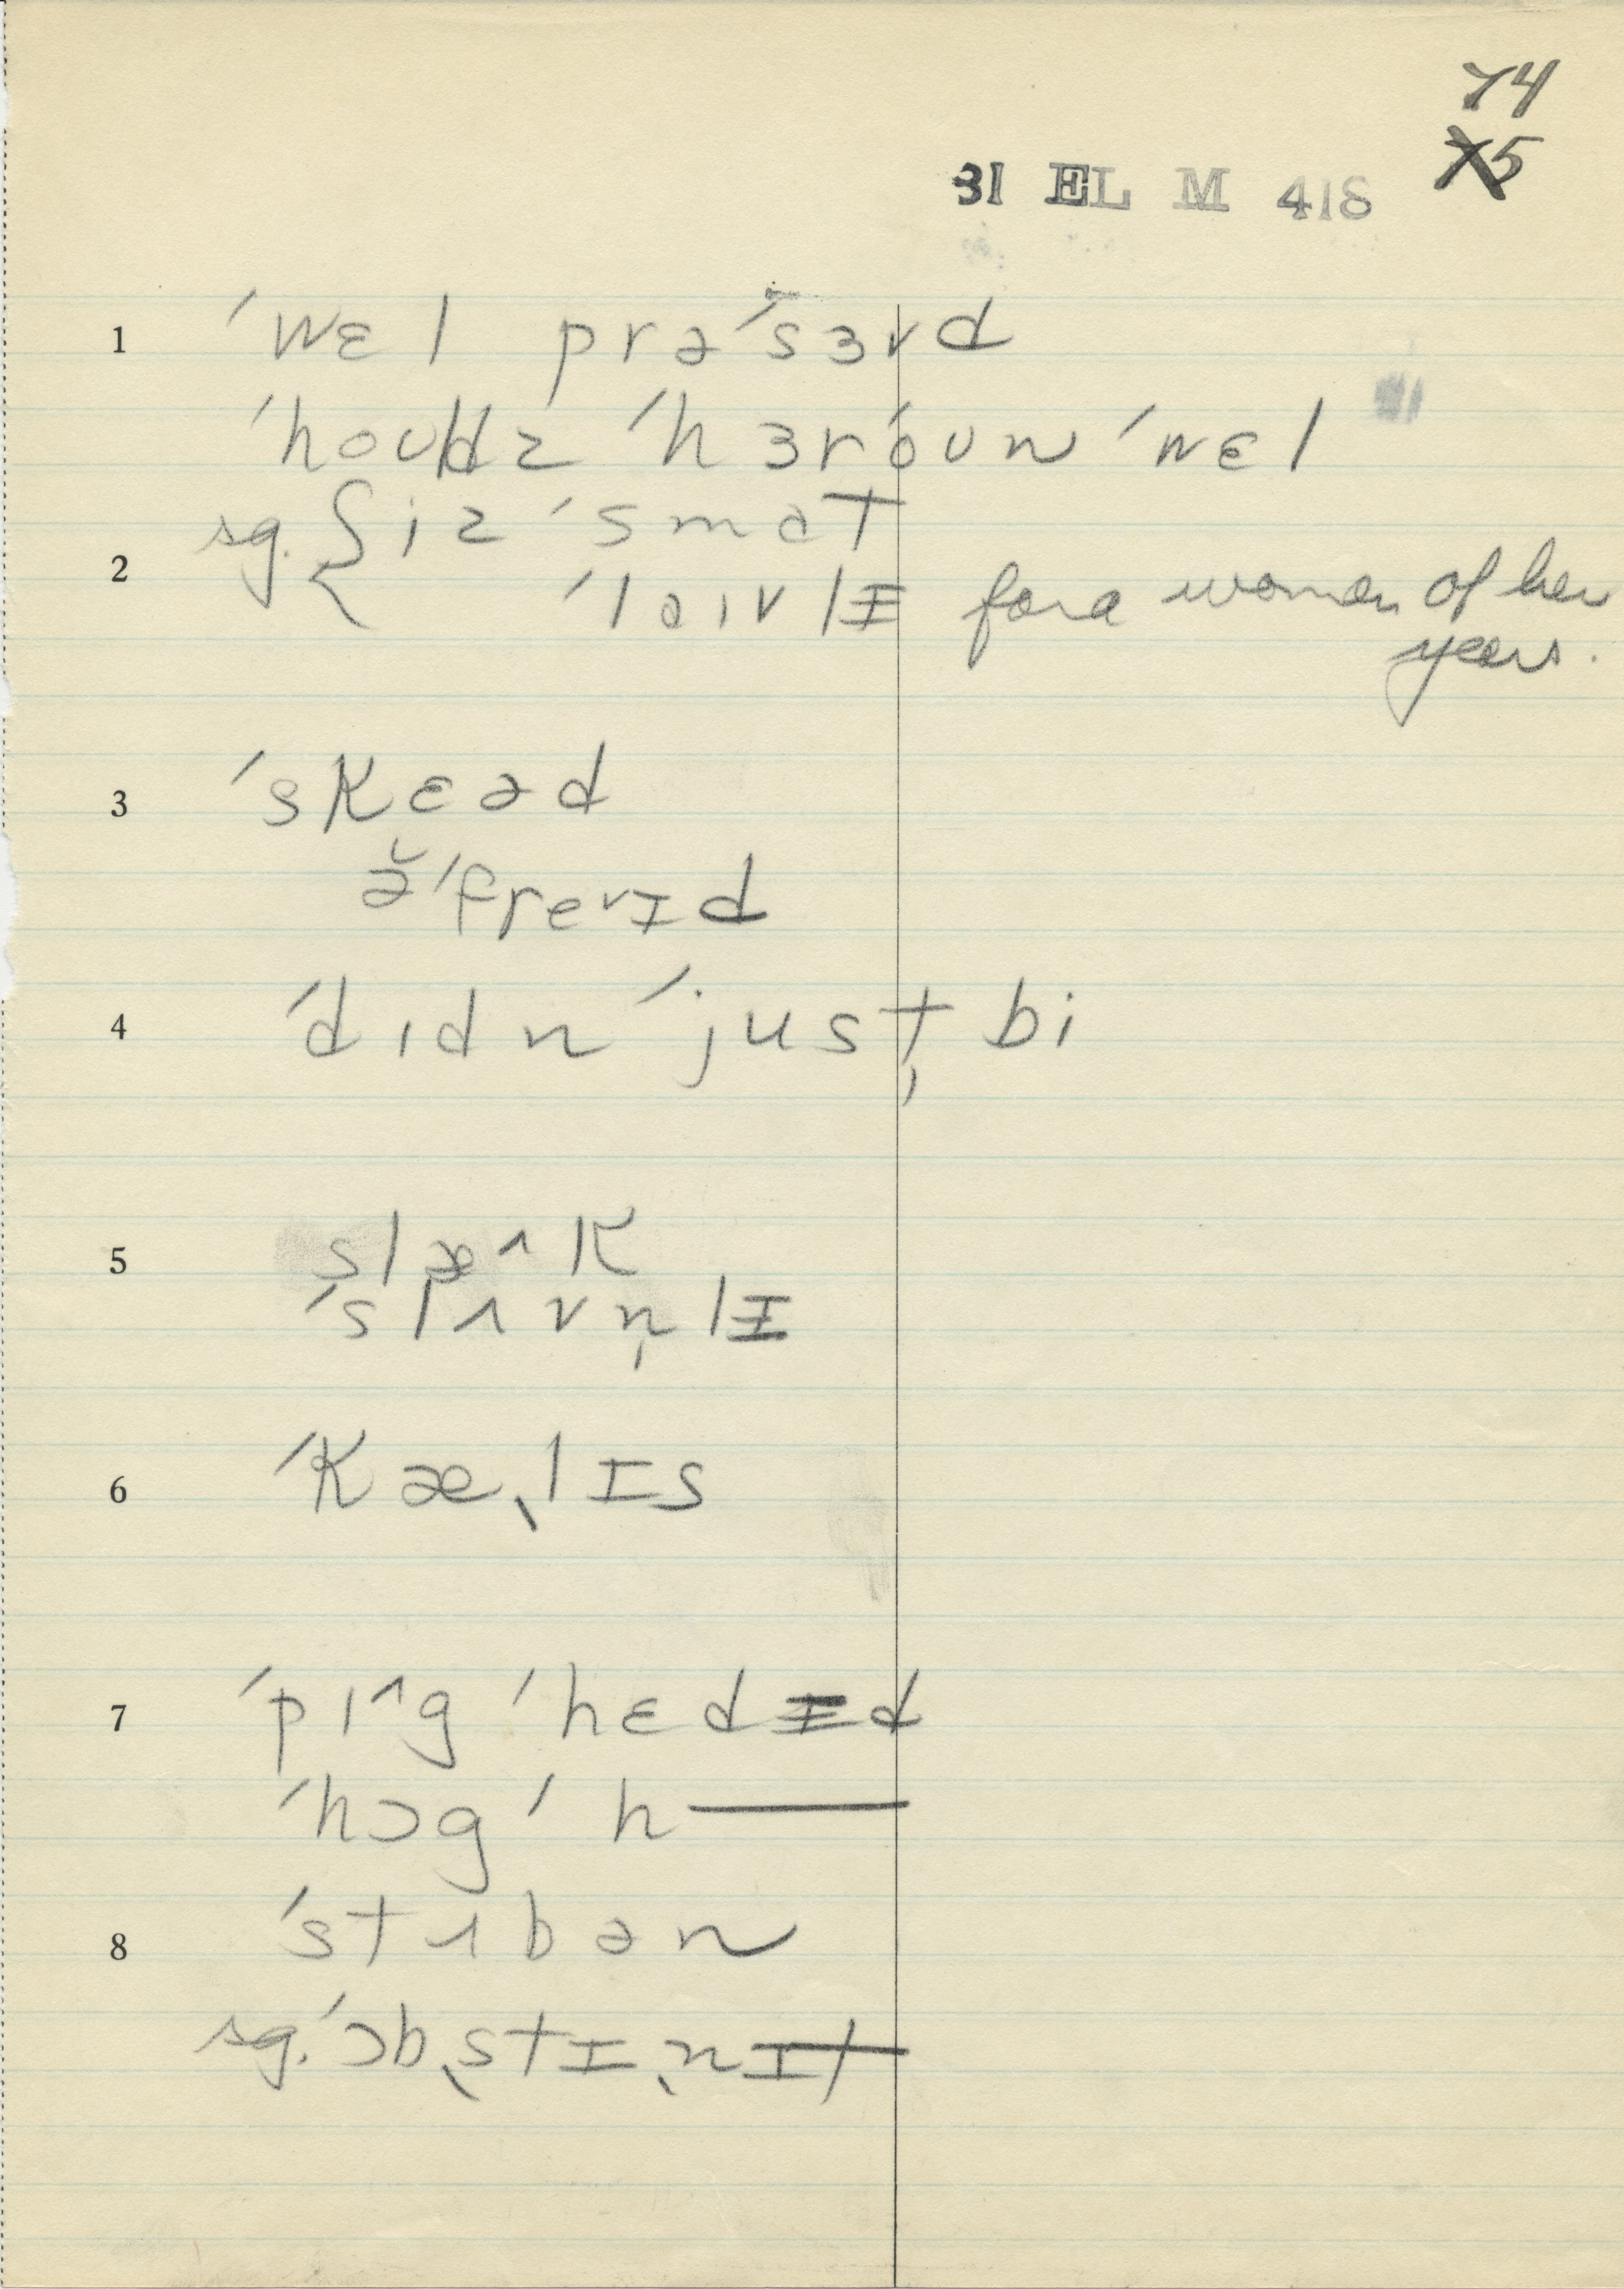 74
X5
31 EL M 418
1 ˈwɛl prəˈsɜvd
ˈhouldz ˈhɜr oun ˈwɛl
sg. { iz ˈsmat
2 ˈlaivlɪ for a woman of her
years.
3 ˈskɛəd
ə̆ˈfre˅ɪd
4 ˈdɪdn ˈjust̩ bi
5 slæ^k
ˈslʌvn̩lɪ
6 ˈkæˌlɪs
7 ˈpɪ^g ˈhɛdɪd
ˈhɔg ˈh——
8 ˈstʌbən
sg. ˈɔbˌstɪˌnɪt